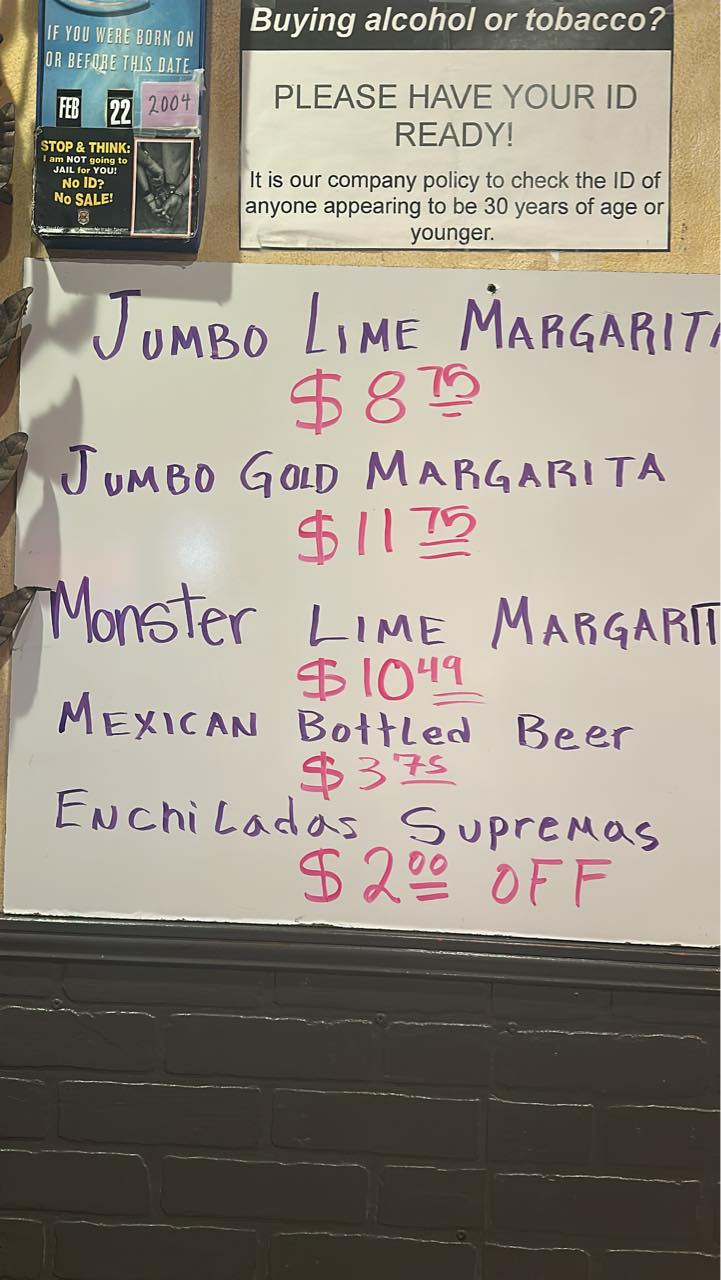 IF YOU WERE BORN ON
OR BEFORE THIS DATE
FEB 22 2004
STOP & THINK:
I am NOT going to
JAIL for YOU!
No ID?
No SALE!
Buying alcohol or tobacco?
PLEASE HAVE YOUR ID
READY!
It is our company policy to check the ID of
anyone appearing to be 30 years of age or
younger.
JUMBO LIME MARGARITA
$8 75
JUMBO GOLD MARGARITA
$11 75
Monster LIME MARGARIT
$10 49
MEXICAN Bottled Beer
$3 75
Enchiladas Supremas
$2 00 OFF